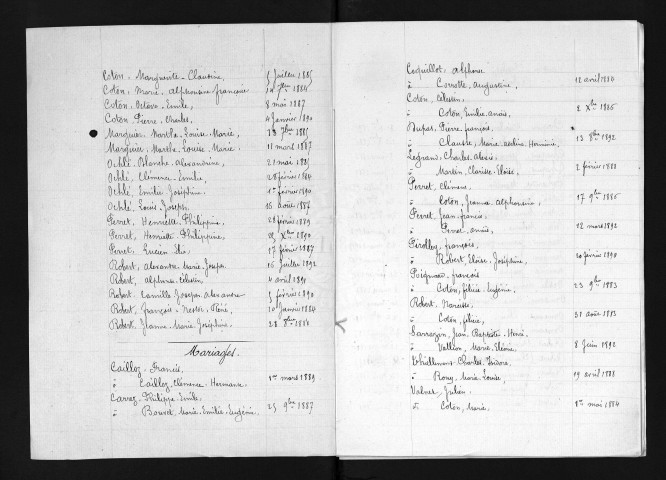 Coton, Marguerite-Claudine, 5 Juillet 1885
Coton, Marie, Alphonsine françoise 14 7bre 1884
Coton, Octave, Emile, 8 mai 1887
Coton, Pierre, Charles, 4 Janvier 1890
Marguier, Marthe, Louise, Marie, 7bre 1885
Marguier, Marthe, Louise, Marie. 18 mars 1887
Ochlé, Blanche, Alexandrine, 21 mai 1885
Ochlé, Clémence, Emilie, 28 février 1884
Ochlé, Emilie, Joséphine, 1er février 1890
Ochlé, Louis, Joseph, 16 août 1887
Perret, Henriette, Philippine, 28 février 1889
Perret, Henriette, Philippine, 25 Xbre 1890
Perret, Lucien, Elie, 17 février 1887
Robert, Alexandre, Marie, Joseph, 16 Juillet 1892
Robert, Alphonse, Célestin, 4 avril 1891
Robert, Camille, Joseph, Alexandre 5 février 1890
Robert, François, Nestor, René, 10 Janvier 1884
Robert, Jeanne, Marie, Joséphine, 28 8bre 1888
Mariages.
Caillez, Francis,
à Caillez, Clémence, Hermance. 1er mars 1889
Carrez, Philippe, Emile,
à Bouvet, Marie, Emilie, Eugénie. 25 9bre 1887
Coquillot, Alphonse
à Cornotte, Augustine, 12 avril 1890
Coton, Célestin,
à Coton, Emilie, Anaïs, 2 Xbre 1885
Dupas, Pierre, françois,
à Clauste, Marie, Hermine, 13 8bre 1892
Legrand, Charles, Alexis,
à Martin, Clarisse, Eloïse, 2 février 1888
Perret, Clément,
à Coton, Jeanne, Alphonsine, 17 9bre 1885
Perret, Jean, francis,
à Perret, Anaïse, 12 mars 1892
Pérolley, françois,
à Robert, Eloïse, Joséphine, 20 février 1890
Poignand, françois
à Coton, félicie, Eugénie, 23 9bre 1883
Robert, Narcisse,
à Coton, félicie, 31 août 1883
Sarrazin, Jean, Baptiste, Henri,
à Vallion, Marie, 8 Juin 1892
Thiellement, Charles, Isidore,
à Rony, Marie, Louise, 19 avril 1888
Valnet, Julien,
à Coton, Marie, 1er mai 1884